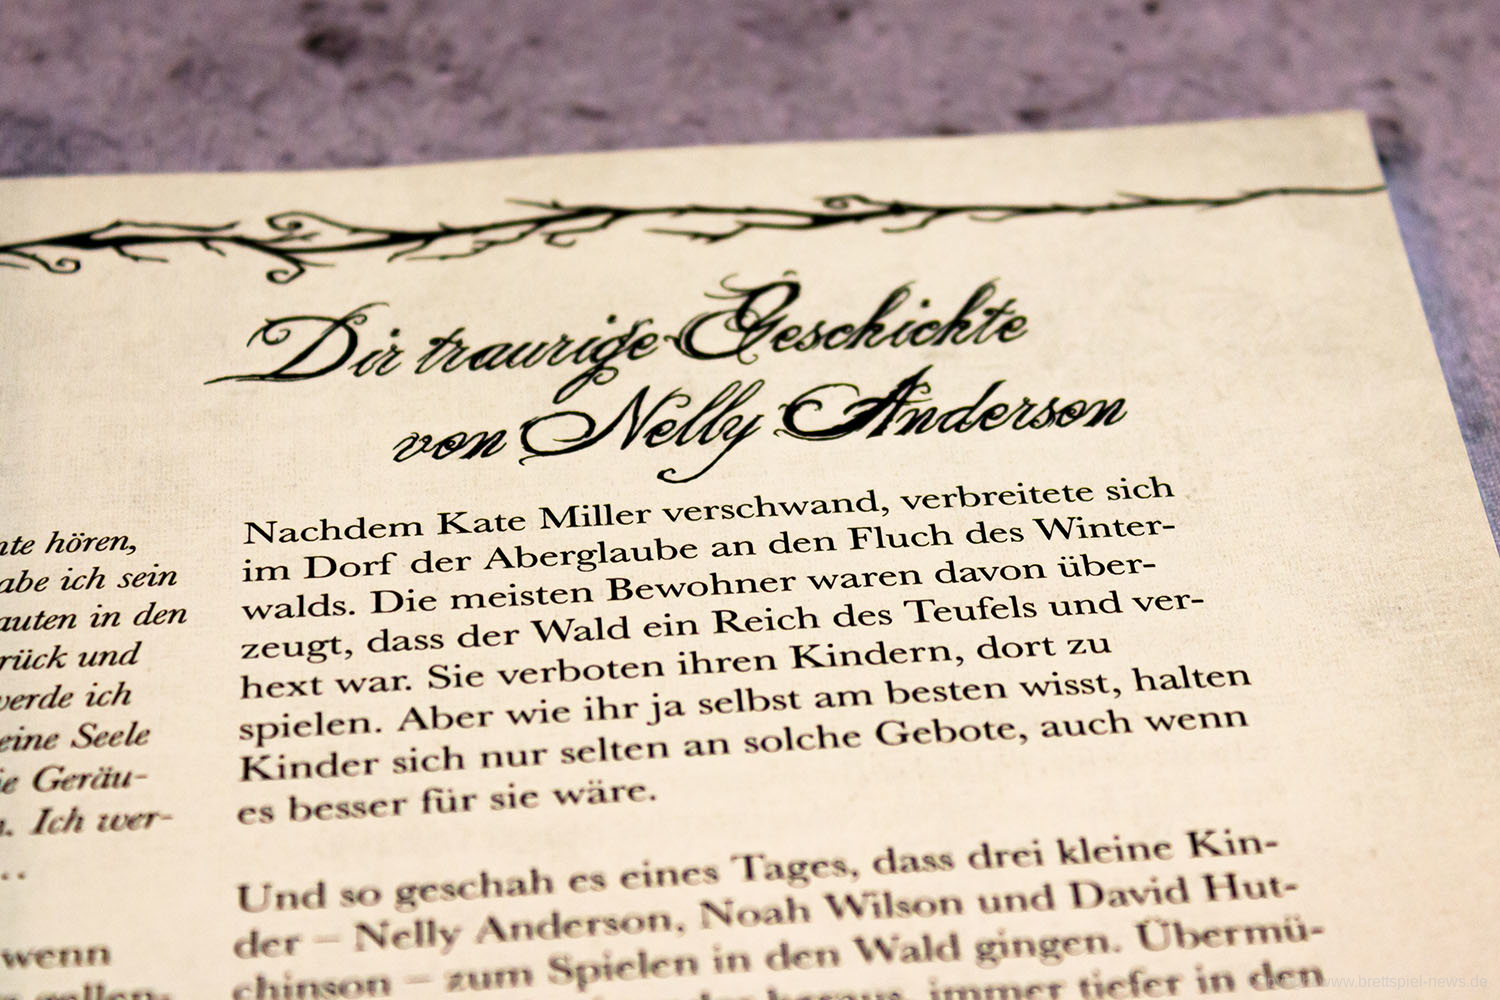 Dir traurige Geschichte
von Nelly Anderson
nte hören,
abe ich sein
auten in den
rück und
verde ich
eine Seele
ie Geräu-
n. Ich wer-
..
wenn
Nachdem Kate Miller verschwand, verbreitete sich
im Dorf der Aberglaube an den Fluch des Winter-
walds. Die meisten Bewohner waren davon über-
zeugt, dass der Wald ein Reich des Teufels und ver-
hext war. Sie verboten ihren Kindern, dort zu
spielen. Aber wie ihr ja selbst am besten wisst, halten
Kinder sich nur selten an solche Gebote, auch wenn
es besser für sie wäre.
Und so geschah es eines Tages, dass drei kleine Kin-
der – Nelly Anderson, Noah Wilson und David Hut-
chinson – zum Spielen in den Wald gingen. Übermü-
heraus, immer tiefer in den
www.brettspiel-news.de